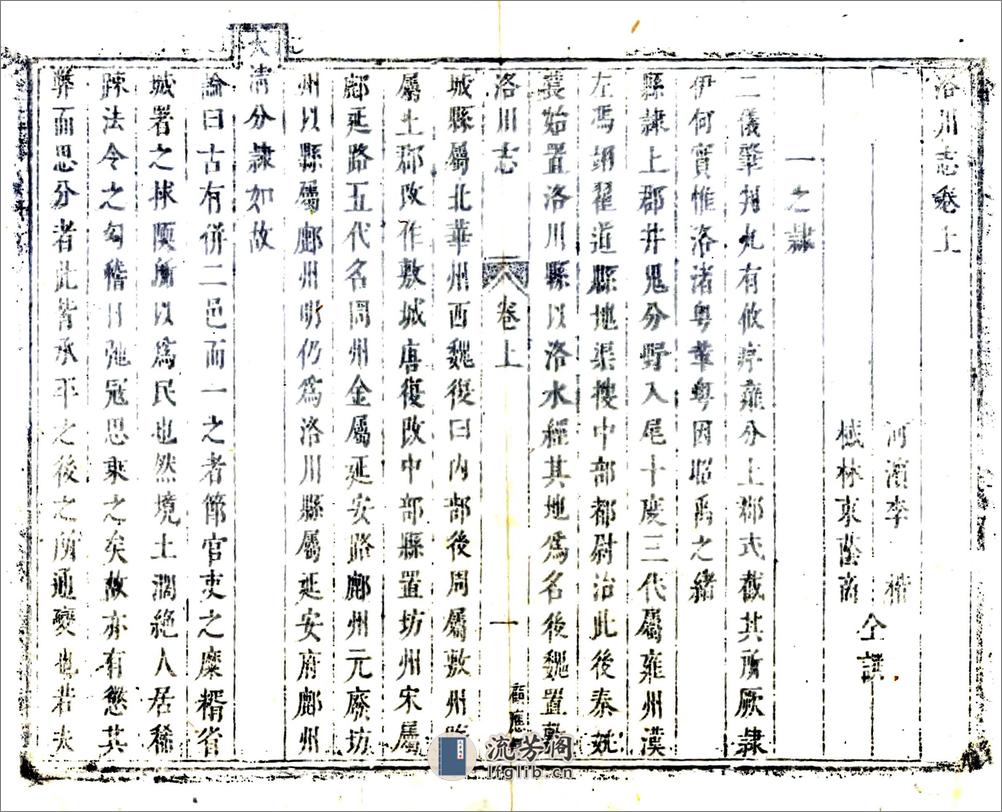 洛川志卷上
河濱李楷
棫林東蔭商
仝譔
一之隸
二儀肇判九有攸序雍分上郡式截其所厥隸
伊何實惟洛渚粵肇粵因昭禹之緒
縣隸上郡井鬼分野入尾十度三代屬雍州漢
左馮翊翟道縣地渠搜中部都尉治此後秦姚
萇始置洛川縣以洛水經其地爲名後魏置敷
洛川志
卷上
一
城縣屬北華州西魏復曰內部後周屬敷州隋
屬上郡改作敷城唐復改中部縣置坊州宋屬
鄜延路五代名周州金屬延安路鄜州元廢坊
州以縣屬鄜州明仍爲洛川縣屬延安府鄜州
大清分隸如故
論曰古有併二邑而一之者節官吏之糜糈省
城者之捄陾所以爲民也然境土濶絕人居稀
踈法令之勾稽日弛冦思乘之矣故亦有懲其
弊而思分者此皆承平之後之所通變也若夫
流芳阁
lfglib.cn